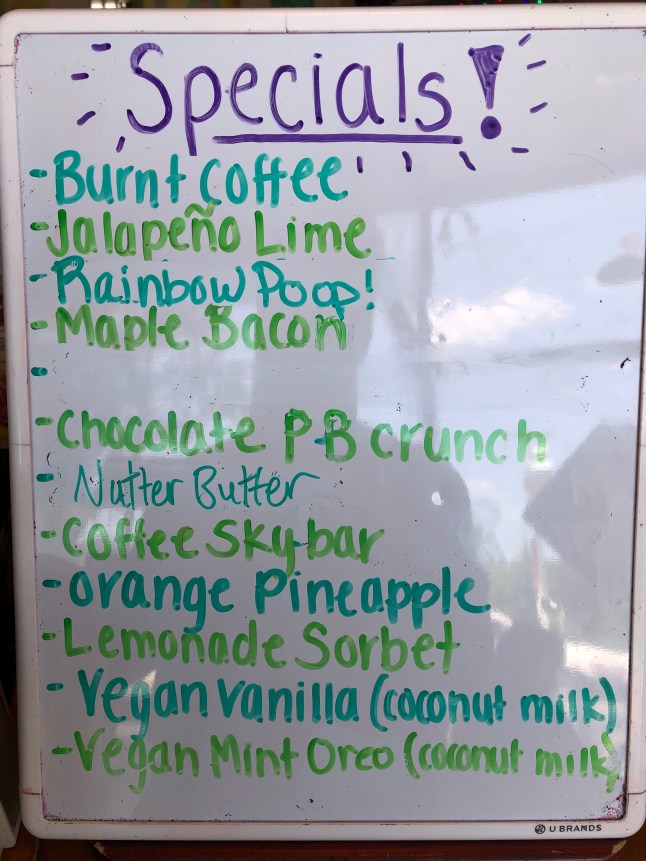 Specials!
- Burnt Coffee
- Jalapeño Lime
- Rainbow Poop!
- Maple Bacon
-
- Chocolate P-B crunch
- Nutter Butter
- Coffee Skybar
- orange Pineapple
- Lemonade Sorbet
- Vegan vanilla (coconut milk)
- Vegan Mint Oreo (coconut milk)
U BRANDS